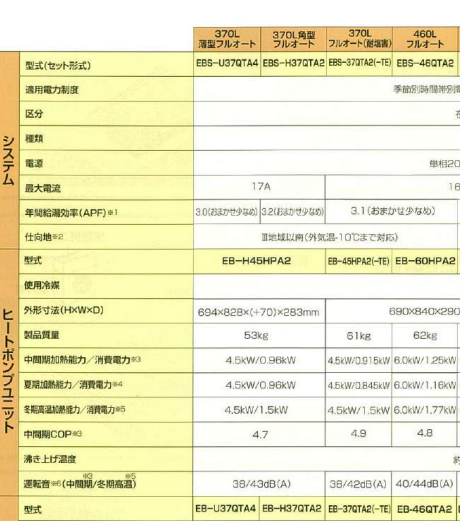 370L 370L角型 370L 460L
薄型フルオート フルオート フルオート(耐塩害) フルオート
型式(セット形式) EBS-U37QTA4 EBS-H37QTA2 EBS-37QTA2(-TE) EBS-46QTA2
適用電力制度 季節別時間帯別
区分
種類
電源 単相20
最大電流 17A 16
年間給湯効率(APF)※1 3.0(おまかせ少なめ) 3.2(おまかせ少なめ) 3.1(おまかせ少なめ)
仕向地※2 Ⅲ地域以南(外気温-10℃まで対応)
システム
型式 EB-H45HPA2 EB-45HPA2(-TE) EB-60HPA2
使用冷媒
外形寸法(H×W×D) 694×828×(+70)×283mm 690×840×290
製品質量 53kg 61kg 62kg
中間期加熱能力/消費電力※3 4.5kW/0.96kW 4.5kW/0.915kW 6.0kW/1.25kW
夏期加熱能力/消費電力※4 4.5kW/0.96kW 4.5kW/0.845kW 6.0kW/1.16kW
冬期高温加熱能力/消費電力※5 4.5kW/1.5kW 4.5kW/1.5kW 6.0kW/1.77kW
中間期COP※3 4.7 4.9 4.8
沸き上げ温度 約
運転音※6(中間期※3/冬期高温※5) 38/43dB(A) 38/42dB(A) 40/44dB(A)
ヒートポンプユニット
型式 EB-U37QTA4 EB-H37QTA2 EB-37QTA2(-TE) EB-46QTA2